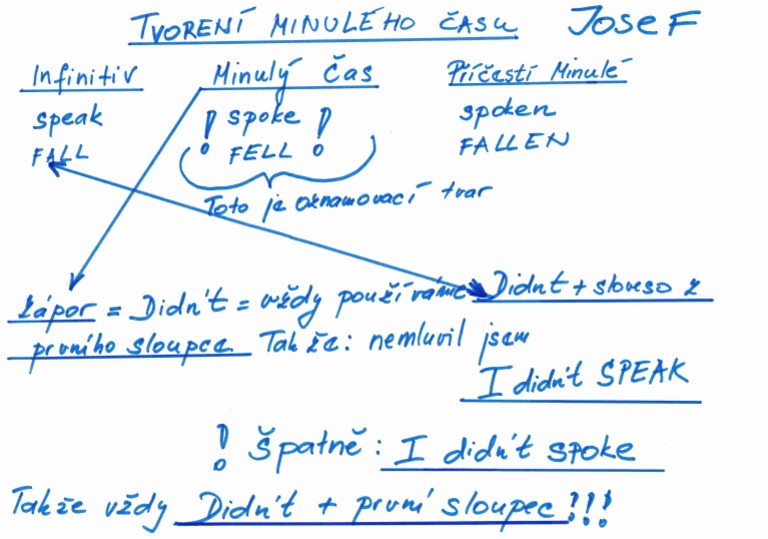 TVORENÍ MINULÉHO ČASU JOSEF
Infinitiv Minulý čas Příčestí Minulé
speak ! spoke ! spoken
FALL ! FELL ! FALLEN
Toto je oznamovací tvar
zápor = Didn't = vždy používáme Didnt + sloveso z
prvního sloupce. Takže: nemluvil jsem
I didn't SPEAK
! Špatně: I didn't spoke
Takže vždy Didn't + první sloupec!!!